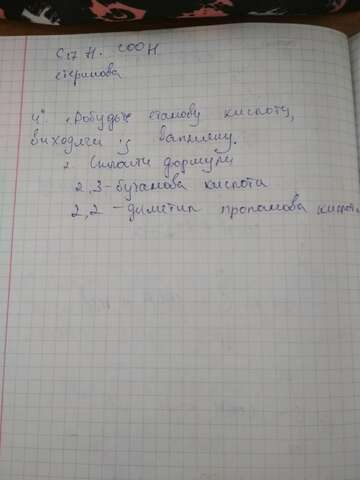 C17 H. COOH
стеринова
4* Добудьте етанову кислоту,
виходячи із вапняку.
2 Скласти формули
2,3-бутанова кислота
2,2-диметил пропанова кислота